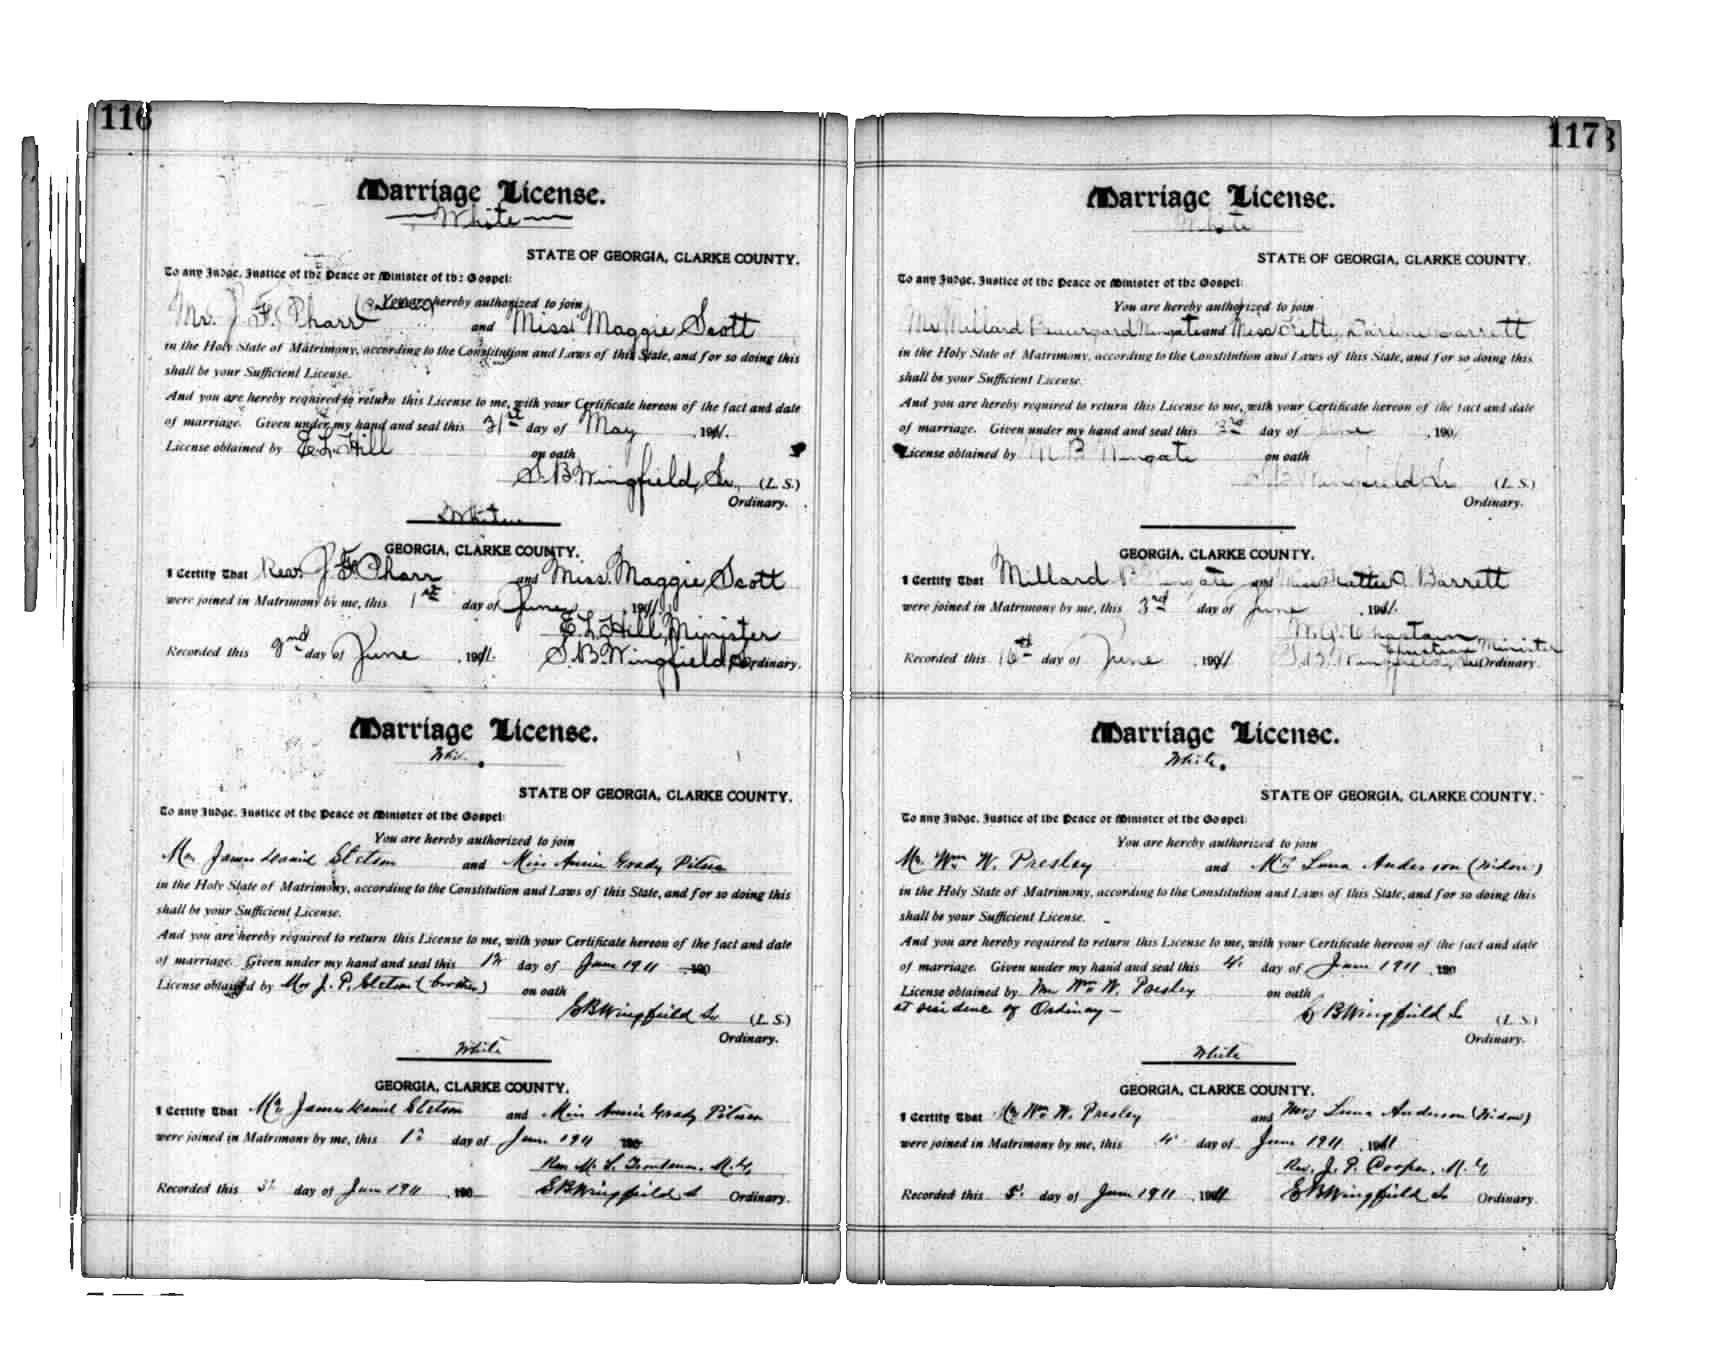 116
Marriage License.
White
STATE OF GEORGIA, CLARKE COUNTY.
To any Judge, Justice of the Peace or Minister of the Gospel:
You are hereby authorized to join
Mr. J. F. Pharr and Miss Maggie Scott
in the Holy State of Matrimony, according to the Constitution and Laws of this State, and for so doing this
shall be your Sufficient License.
And you are hereby required to return this License to me, with your Certificate hereon of the fact and date
of marriage. Given under my hand and seal this 31st day of May , 1911.
License obtained by E. L. Hill on oath
S. B. Wingfield, Sr. (L. S.)
Ordinary.
White
GEORGIA, CLARKE COUNTY.
I Certify That Rev. J. F. Pharr and Miss Maggie Scott
were joined in Matrimony by me, this 1st day of June , 1911.
E. L. Hill, Minister
Recorded this 2nd day of June , 1911. S. B. Wingfield Ordinary.
Marriage License.
STATE OF GEORGIA, CLARKE COUNTY.
To any Judge, Justice of the Peace or Minister of the Gospel:
You are hereby authorized to join
Mr James Daniel Stetson and Miss Annie Grady Pitner
in the Holy State of Matrimony, according to the Constitution and Laws of this State, and for so doing this
shall be your Sufficient License.
And you are hereby required to return this License to me, with your Certificate hereon of the fact and date
of marriage. Given under my hand and seal this 1st day of June 1911 , 190
License obtained by Mr J. P. Stetson (brother) on oath
S B Wingfield Sr (L. S.)
Ordinary.
White
GEORGIA, CLARKE COUNTY.
I Certify That Mr James Daniel Stetson and Miss Annie Grady Pitner
were joined in Matrimony by me, this 1st day of June 1911 190
Rev M. L. Troutman, M. G.
Recorded this day of June 1911 , 190 S B Wingfield Sr Ordinary.
117
Marriage License.
White
STATE OF GEORGIA, CLARKE COUNTY.
To any Judge, Justice of the Peace or Minister of the Gospel:
You are hereby authorized to join
Mr Millard Wingate and Miss Barrett
in the Holy State of Matrimony, according to the Constitution and Laws of this State, and for so doing this
shall be your Sufficient License.
And you are hereby required to return this License to me, with your Certificate hereon of the fact and date
of marriage. Given under my hand and seal this 3rd day of June , 190
License obtained by M B Wingate on oath
S. B. Wingfield, Sr (L. S.)
Ordinary.
GEORGIA, CLARKE COUNTY.
I Certify That Millard B Wingate and Miss Barrett
were joined in Matrimony by me, this 3rd day of June , 1911.
Chastain
Christian Minister
Recorded this 16th day of June , 1911. S. B. Wingfield, Sr Ordinary.
Marriage License.
White.
STATE OF GEORGIA, CLARKE COUNTY.
To any Judge, Justice of the Peace or Minister of the Gospel:
You are hereby authorized to join
Mr. Wm W. Presley and Mrs Luna Anderson (Widow)
in the Holy State of Matrimony, according to the Constitution and Laws of this State, and for so doing this
shall be your Sufficient License.
And you are hereby required to return this License to me, with your Certificate hereon of the fact and date
of marriage. Given under my hand and seal this 4. day of June 1911 , 190
License obtained by Mr Wm W. Presley on oath
at residence of Ordinary -
S B Wingfield Sr (L. S.)
Ordinary.
White
GEORGIA, CLARKE COUNTY.
I Certify That Mr Wm W. Presley and Mrs Luna Anderson (Widow)
were joined in Matrimony by me, this 4 day of June 1911 , 1911
Rev. J. P. Cooper, M. G.
Recorded this 5 day of June 1911 , 1911 S B Wingfield Sr Ordinary.